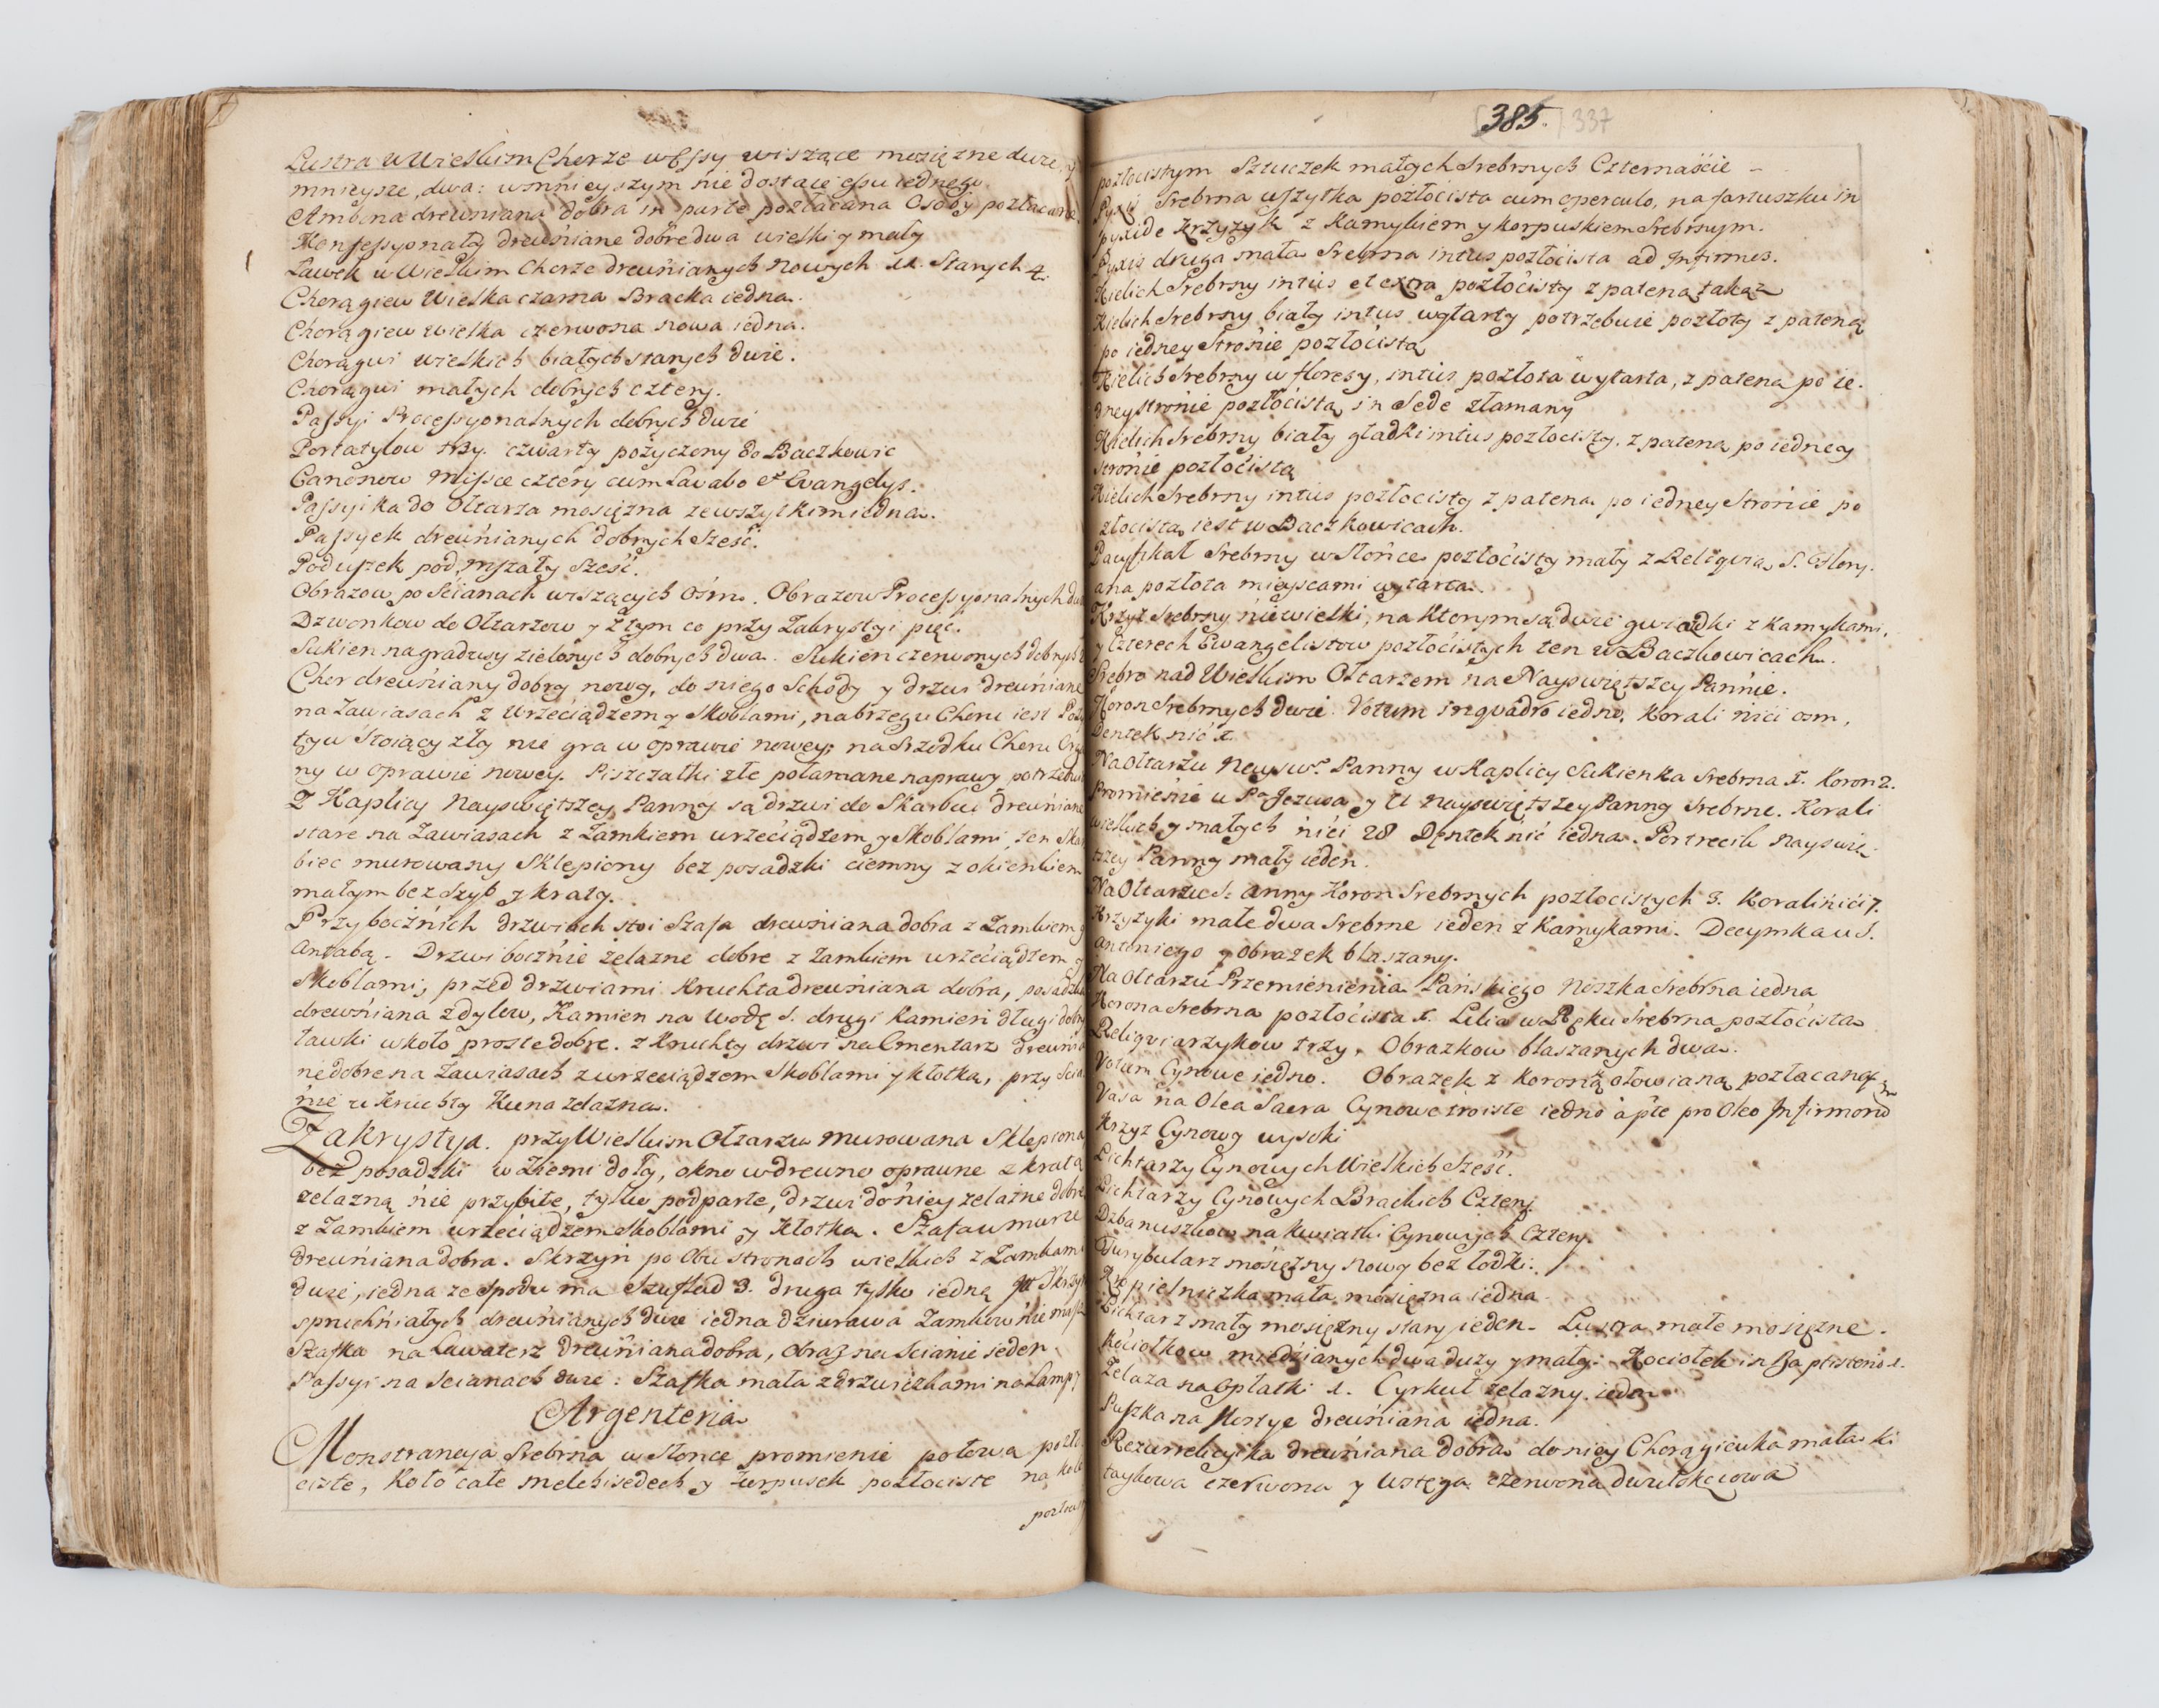 Lustra w Wielkim Chorze w Essy wiszące mosiązne duże y
mnieysze, dwa: w mnieyszym nie dostaie essu iednego.
Ambona drewniana dobra in parte pozłacana Osoby pozłacane.
Konfessyonały drewniane dobre dwa wielki y mały
Ławek w Wielkim Chorze drewnianych nowych Starych 4.
Chorągiew Wielka czarna Bracka iedna.
Chorągiew wielka czerwona nowa iedna.
Chorągwi wielkich białych starych dwie.
Chorągwi małych dobrych cztery.
Passyi Processyonalnych dobrych dwie
Portatylow trzy. czwarty pożyczony do Baczkowic
Canonow Missae cztery cum Lavabo et Evangelys.
Passyika do Ołtarza mosiężna ze wszytkim iedna.
Passyek drewnianych dobrych sześć.
Poduszek pod mszały sześć.
Obrazow po Ścianach wiszących Ośm. Obrazow Processyonalnych
Dzwonkow do Ołtarzow y z tym co przy Zakrystyi pięć.
Sukien na gradusy zielonych dobrych dwa. Sukien czerwonych dobrych
Chor drewniany dobry nowy, do niego Schody y drzwi drewniane
na Zawiasach z Wrzeciądzem y Skoblami, na brzegu Choru iest Pozy
tyw Stoiący zły nie gra w oprawie nowey; na Srzodku Choru Orga
ny w oprawie nowey. Piszczałki złe połamane naprawy potrzebuią
Z Kaplicy Nayświętszey Panny są drzwi do Skarbcu drewniane
stare na Zawiasach z Zamkiem wrzeciądzem y Skoblami, ten Skar
biec murowany Sklepiony bez posadzki ciemny z okienkiem
małym bez Szyb y kraty.
Przy bocznich drzwiach stoi Szafa drewniana dobra z Zamkiem y
Antabą. Drzwi bocznie żelazne dobre z zamkiem wrzeciądzem y
Skoblami; przed drzwiami Kruchta drewniana dobra, posadzka
drewniana z dylow, Kamien na Wodę S. drugi Kamień długi dobry
ławki wkoło proste dobre. z Kruchty drzwi na Cmentarz drewnia
ne dobre na Zawiasach z wrzeciądzem Skoblami y kłotką, przy Scia
nie u kruchty Kuna żelazna.
Zakrystya. przy Wielkim Ołtarzu murowana Sklepiona
bez posadzki w Ziemi doły, okno w drewno oprawne z kratą
żelazną nie przybite, tylko podparte, drzwi do niey żelazne dobre
z Zamkiem wrzeciądzem Skoblami y Kłotką. Szafa w murze
drewniana dobra. Skrzyń po Obu stronach wielkich z Zamkami
dwie, iedna ze spodu ma Szuflad 3. druga tylko iedną Skrzyń
spruchniałych drewnianych dwie iedna dziurawa Zamkow nie masz
Szafka na Lawaterz drewniana dobra, obraz na Scianie ieden
Passyi na Scianach dwie: Szafka mała z drzwiczkami na Lampy
Argenteria
Monstrancya Srebrna w Słońce promienie połowa pozło
ciste, koło całe melchisedech y korpusek pozłociste na kole
pozłocis
385. 337
pozłocistym Sztuczek małych Srebrnych Czternaście
Pyxis Srebrna wszytka pozłocista cum operculo, na fartuszku in
pyxide krzyżyk z Kamykiem y korpuskiem Srebrnym.
Pyxis druga mała Srebrna intus pozłocista ad Infirmos.
Kielich Srebrny intus et extra pozłocisty z pateną taką
Kielich Srebrny biały intus wytarty potrzebuie pozłoty z pateną
po iedney Stronie pozłocistą
Kielich Srebrny w floresy, intus pozłota wytarta, z pateną po ie-
dney stronie pozłocistą in Sede złamany
Kielich Srebrny biały gładki intus pozłocisty. z pateną po iedney
stronie pozłocistą
Kielich Srebrny intus pozłocisty z pateną po iedney Stronie po
złocistą iest w Baczkowicach.
Pacyfikał Srebrny w Słońce pozłocisty mały z Reliqvią S. Flory-
ana pozłota mieyscami wytarta.
Krzyż Srebrny niewielki, na ktorym są dwie gwiazdki z kamykami,
y Czterech Ewangelistow pozłocistych ten w Baczkowicach.
Srebro nad Wielkim Ołtarzem na Nayświętszey Pannie.
Koron Srebrnych dwie. Votum in qvadro iedno, Korali nici osm,
Dentek nić 1.
Na Ołtarzu Nayświ. Panny w Kaplicy Sukienka Srebrna 1. Koron 2.
Promienie u Pa Jezusa y U Nayświętszey Panny Srebrne. Korali
wielkich y małych nici 28 Dentek nić iedna. Portrecik Nayświę
tszey Panny mały ieden.
Na Ołtarzu S. Anny Koron Srebrnych pozłocistych 3. Korali nici 7.
Krzyżyki małe dwa Srebrne ieden z Kamykami. Decymka u S.
Antoniego y obrazek blaszany.
Na Ołtarzu Przemienienia Pańskiego Nóżka Srebrna iedna
Korona Srebrna pozłocista 1. Lilia w Ręku Srebrna pozłocista
Reliqviarzykow trzy. Obrazkow blaszanych dwa.
Votum Cynowe iedno. Obrazek z Koroną ołowianą pozłacaną
Vasa na Olea Sacra Cynowe troiste iedno a pte pro Oleo Infirmorum
Krzyż Cynowy wysoki
Lichtarzy Cynowych Wielkich Sześć.
Lichtarzy Cynowych Brackich Cztery
Dzbanuszkow na kwiatki Cynowych Cztery
Turybularz mosiężny nowy bez łodki.
Kropielniczka mała mosiężna iedna.
Lichtarz mały mosiężny stary ieden. Lustra małe mosiężne.
Kociołkow miedzianych dwa duży y mały. Kociołek in Baptisterio 1.
Żelaza na Opłatki 1. Cyrkuł żelazny ieden
Puszka na Hostye drewniana iedna.
Rezurrekcyika drewniana dobra do niey Chorągiewka mała ki
taykowa czerwona y wstęga czerwona dwułokciowa